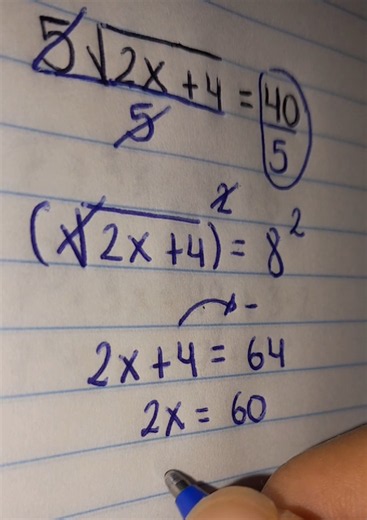 5√2x+4 / 5 = 40/5
(√2x+4)² = 8²
2x+4 = 64
2x = 60